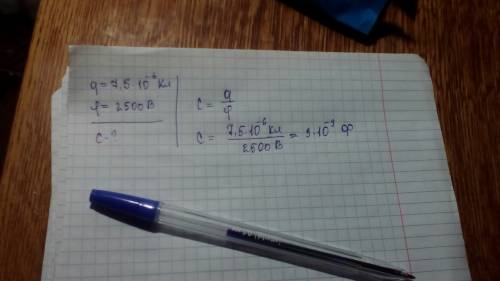 q = 7,5·10⁻⁶ Кл
φ = 2500 В
C - ?
C = q/φ
C = 7,5·10⁻⁶ Кл / 2500 В = 3·10⁻⁹ Ф